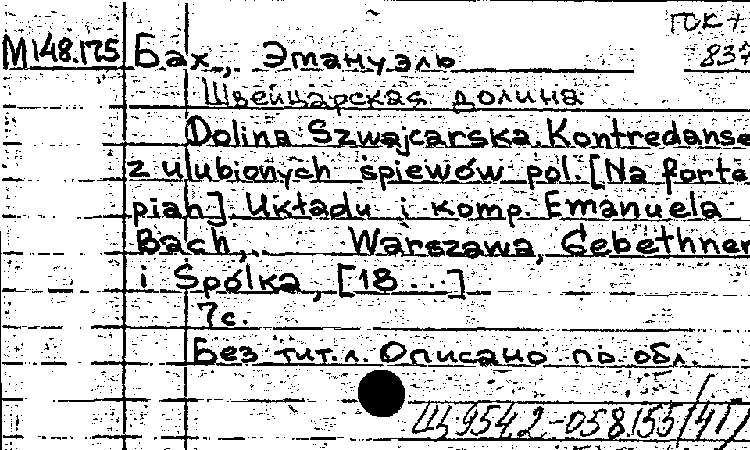 ГСК +
М148.175 Бах, Эмануэль 837
Швейцарская долина
Dolina Szwajcarska. Kontredanse
z ulubionych śpiewów pol. [Na forte
pian]. Układu i komp. Emanuela
Bach,. Warszawa, Gebethner
i Spólka, [18...]
7с.
Без тит. л. Описано по обл.
9542-058.155/41